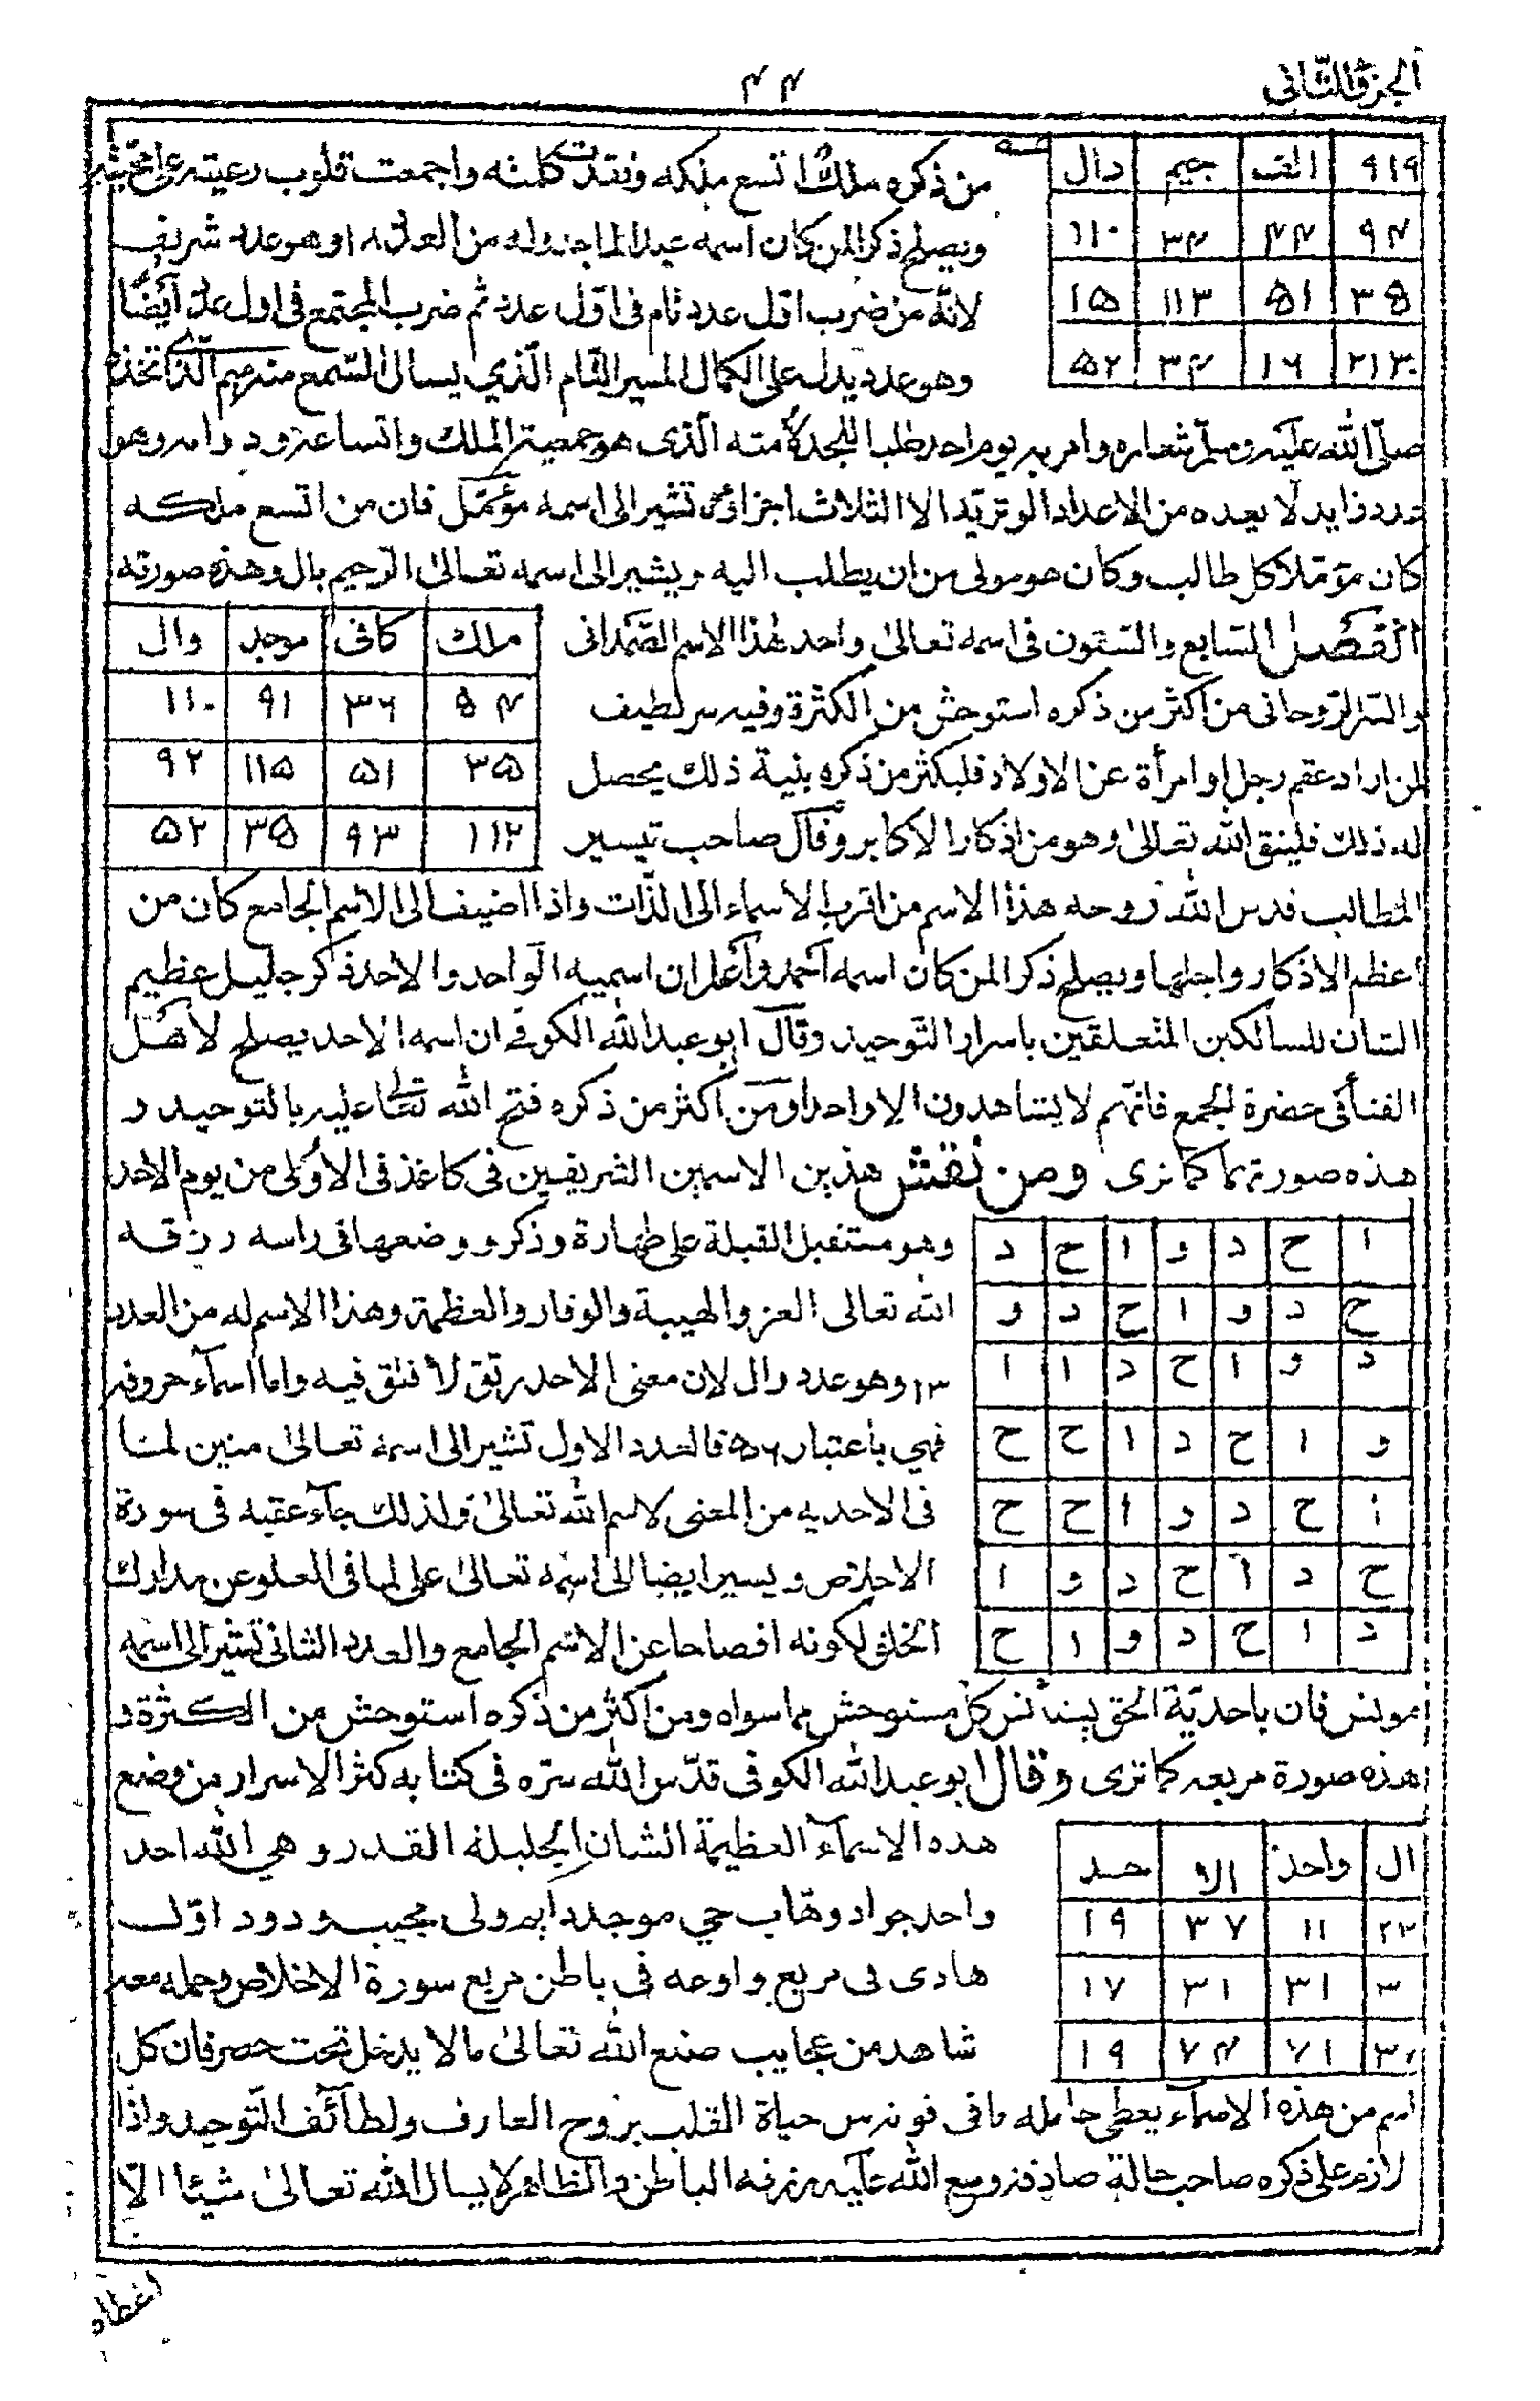 الجزؤ الثانى
٤٤
٩١٩ الف جيم دال
٩٤ ٤٤ ٣٤ ١١٠
٣٥ ٥١ ١١٣ ١٥
٢١٣٠ ١٦ ٣٤ ٥٢
من ذكره ملك اتسع ملكه ونفذت كلمته واجمعت قلوب رعيته على محبته
ويصلح ذكرا لمن كان اسمه عبد الماجد وله من العدد ٤٨ وهو عدد شريف
لانّه من ضرب اوّل عدد تام فى اوّل عدد ثم ضرب المجتمع فى اول عدد ايضًا
وهو عدد يدل على الكمال المسير التّام الّذي يسال السّمع الّذى اتخذه
صلّى الله عليه وسلم شعاره وامر به يوم احد طلبا للمجد لامته الّذى هو جمعية الملك واتساعه ودوامه وهو
عدد زايد لا بعده من الاعداد الوتريّة الا الثلاث اجزاؤه تشير الى اسمه مؤمّل فان من اتسع ملكه
كان مؤملا كل طالب وكان هو مولى من ان يطلب اليه ويشير الى اسمه تعالى الرّحيم بال وهذه صورته
الفصل السّابع والستون فى اسمه تعالى واحد هذا الاسم الصّمدانى
ملك كافى موجد وال
٥٤ ٣٦ ٩١ ١١٠
٣٥ ٥١ ١١٥ ٩٢
١١٢ ٩٣ ٣٥ ٥٢
والسّر الرّوحانى من اكثر من ذكره استوحش من الكثرة وفيه سر لطيف
لمن اراد عقم رجل او امرأة عن الاولاد فليكثر من ذكره بنية ذلك يحصل
له ذلك فليتق الله تعالى وهو من اذكار الاكابر وقال صاحب تيسير
المطالب قدس الله روحه هذا الاسم من اقرب الاسماء الى الذّات واذا اضيف الى الاسم الجامع كان من
اعظم الاذكار واجلها ويصلح ذكرا لمن كان اسمه احمد واعلم ان اسميه الواحد والاحد ذكر جليل عظيم
الشان للسالكين المتعلقين باسرار التّوحيد وقال ابو عبد الله الكوفى ان اسمه الاحد يصلح لاهل
الفنا فى حضرة الجمع فانّهم لا يشاهدون الا واحدا ومن اكثر من ذكره فتح الله تعالى عليه بالتوحيد و
هذه صورتهما كما ترى ومن نقش هذين الاسمين الشريفين فى كاغذ فى الاولى من يوم الاحد
ا ح د و ا ح د
ح د و ا ح د و
د و ا ح د ا ا
و ا ح د ا ح ح
ا ح د و ا ح ح
ح د ا ح د و ا
د ا ح د و ا ح
وهو مستقبل القبلة على طهارة وذكر ووضعها فى راسه رزقه
الله تعالى العز والهيبة والوقار والعظمة وهذا الاسم له من العدد
١٣ وهو عدد دال لان معنى الاحد رتق لا فتق فيه واما اسمآء حروفه
فهي باعتبار ٥٦ فالعدد الاول تشير الى اسمه تعالى مبين لما
فى الاحديه من المعنى لاسم الله تعالى ولذلك جآء عقبه فى سورة
الاخلاص ويسير ايضا الى اسمه تعالى على لما فى العلو عن مدارك
الخلق لكونه افصاحا عن الاسم الجامع والعدد الثانى تشير الى اسمه
مونس فان باحديّة الحق يستانس كل مستوحش مما سواه ومن اكثر من ذكره استوحش من الكثرة و
هذه صورة مربعه كما ترى وقال ابو عبد الله الكوفى قدّس الله سرّه فى كتابه كنز الاسرار من وضع
ال واحد الا حد
٢٣ ١١ ٣٧ ١٩
٣ ٣١ ٣١ ١٧
٣٠ ٧١ ٧٤ ١٩
هده الاسمآء العظيمة الشان الجليلة القدر وهي الله احد
واحد جواد وهّاب حي موجد دايم ولى مجيب ودود اوّل
هادى فى مربع واوعه فى باطن مربع سورة الاخلاص وحمله معه
شاهد من عجايب صنع الله تعالى ما لا يدخل تحت حصر فان كل
اسم من هذه الاسمآء يعطى حامله ما فى قوته من حياة القلب بروح العارف ولطآئف التّوحيد واذا
لازم على ذكره صاحب حالة صادقة وسع الله عليه رزقه الباطن والظاهر لا يسال الله تعالى شيئا الّا
اعطاه